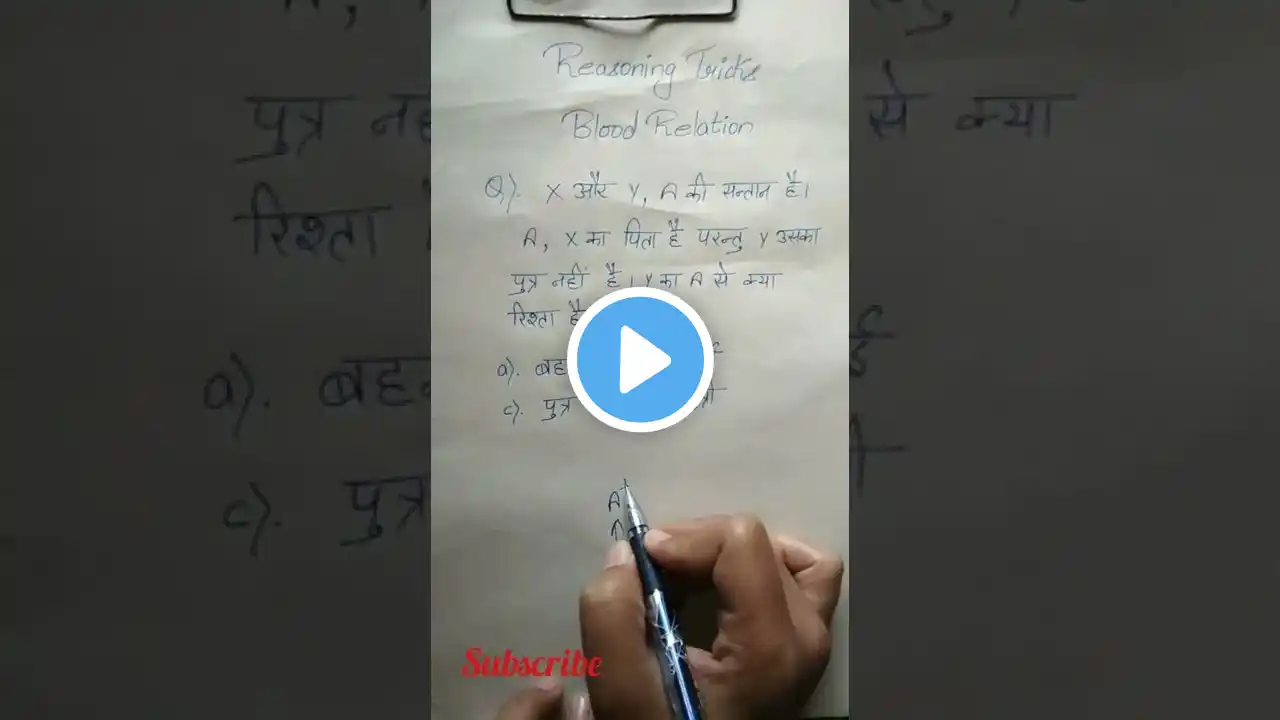 Reasoning Tricks
Blood Relation
Q). X और Y, A की सन्तान है।
A, X का पिता है परन्तु Y उसका
पुत्र नहीं है। Y का A से क्या
रिश्ता है
a).
c). पुत्र
A
Subscribe